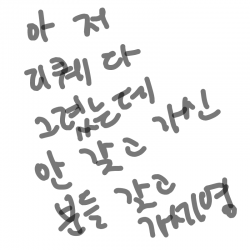 아 저
리퀘 다
그렸는데
안 갖고 가신
분들 갖고
가세영